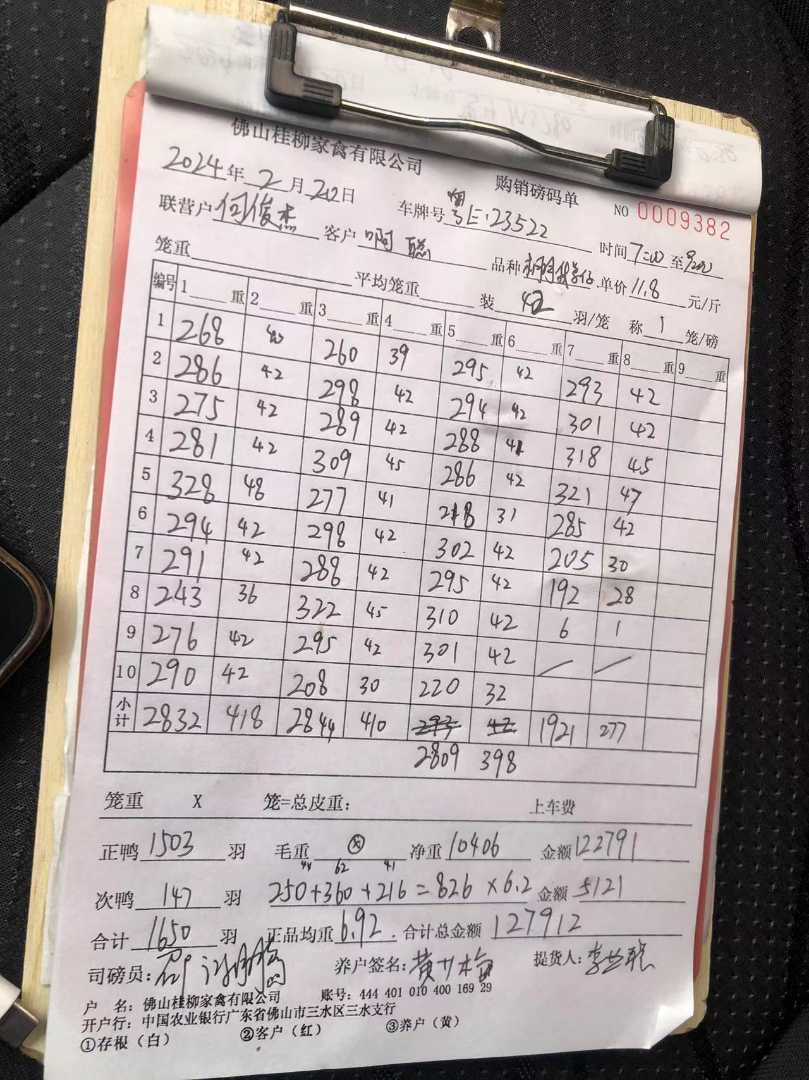 佛山桂柳家禽有限公司
购销磅码单 NO 0009382
2024年 2月 20日
联营户 何俊杰 客户 啊聪 车牌号 粤E·23522 时间 7:00 至
笼重 平均笼重 装 42 羽/笼 品种 单价 11.8 元/斤
称 1 笼/磅
编号 1 重 2 重 3 重 4 重 5 重 6 重 7 重 8 重 9 重
1 268 260 39 295 42 293 42
2 286 42 298 42 294 42 301 42
3 275 42 289 42 288 41 318 45
4 281 42 309 45 286 42 321 47
5 328 48 277 41 218 31 285 42
6 294 42 298 42 302 42 205 30
7 291 42 288 42 295 42 192 28
8 243 36 322 45 310 42 6 1
9 276 42 295 42 301 42 / /
10 290 42 208 30 220 32
小计 2832 418 2844 410 293 42 1921 277
2809 398
笼重 X 笼=总皮重: 上车费
正鸭 1503 羽 毛重 净重 10406 金额 122791
44 62 41
次鸭 147 羽 250+360+216=826×6.2 金额 5121
合计 1650 羽 正品均重 6.92 合计总金额 127912
司磅员: 养户签名: 黄 梅 提货人: 李
户 名: 佛山桂柳家禽有限公司 账号: 444 401 010 400 169 29
开户行: 中国农业银行广东省佛山市三水区三水支行
①存根(白) ②客户(红) ③养户(黄)